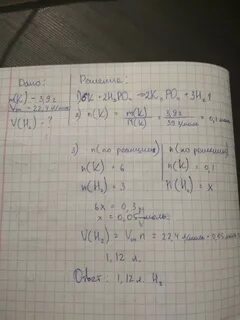 Дано:
m(K) = 3,9 г
Vm = 22,4 л/моль
V(H₂) - ?
Решение:
1) 6K + 2H₃PO₄ → 2K₃PO₄ + 3H₂↑
2) n(K) = m(K)/M(K) = 3,9 г/39 г/моль = 0,1 моль
3) n (по реакции) | n (по решению)
n(K) = 6 | n(K) = 0,1
n(H₂) = 3 | n(H₂) = x
6x = 0,3
x = 0,05 моль
V(H₂) = Vm · n = 22,4 л/моль · 0,05 моль
1,12 л.
Ответ: 1,12 л. H₂